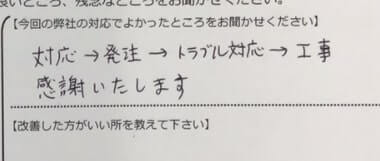 良いところ、残念なところをお聞かせください。
【今回の弊社の対応でよかったところをお聞かせください】
対応→発注→トラブル対応→工事
感謝いたします
【改善した方がいい所を教えて下さい】